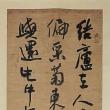 結廬在人
偏采菊東
與還此中